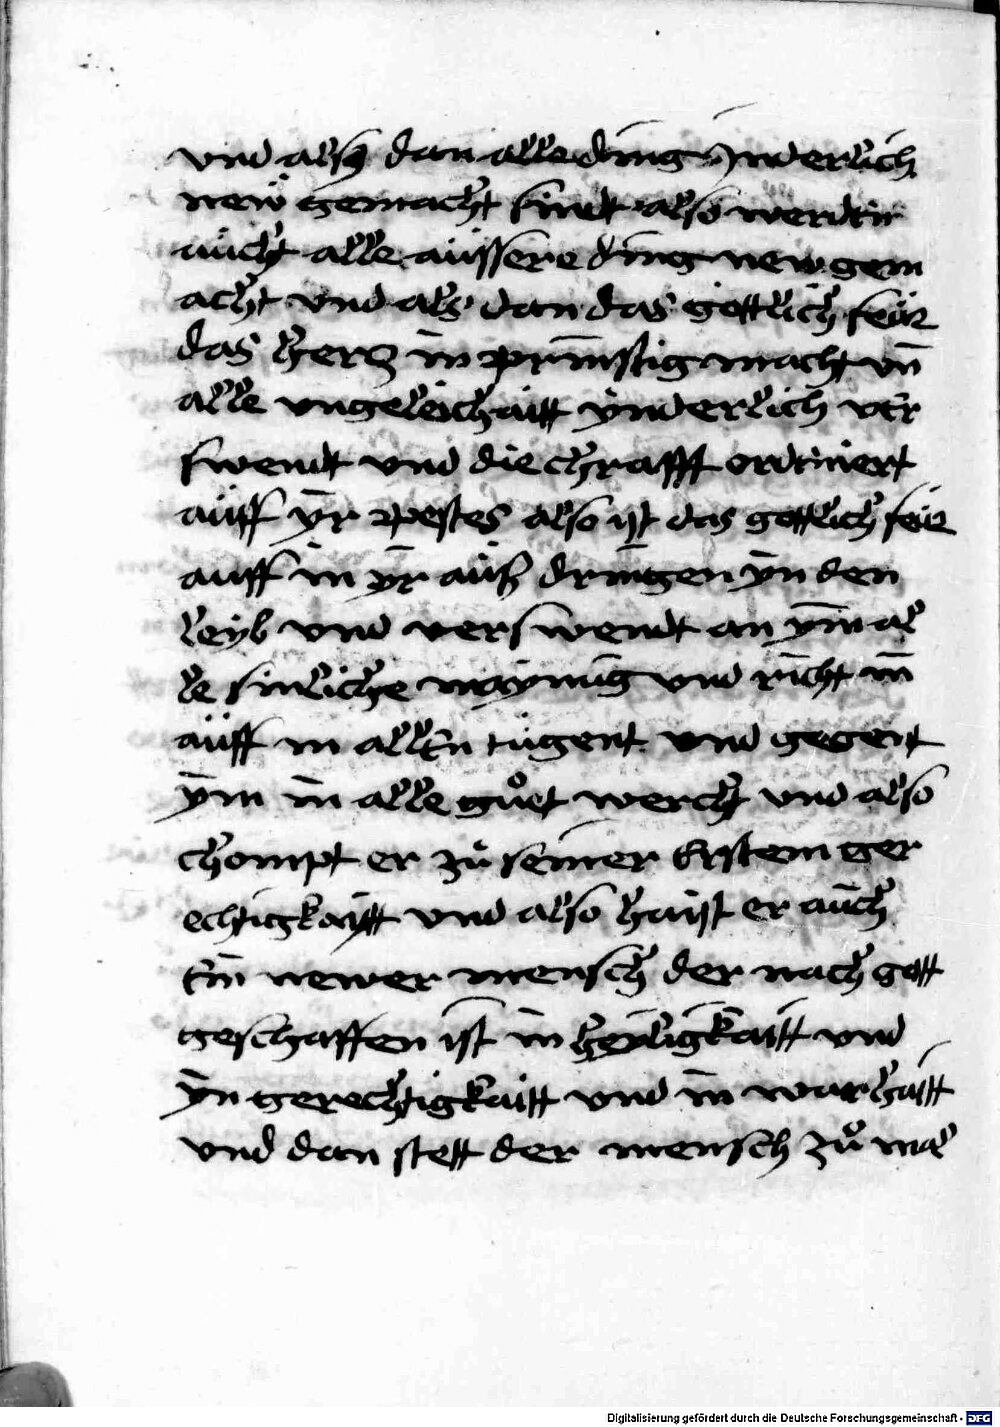 vnd alſo dan alle ding Jnderlich
new gemacht ſindt alſo werdin
aüch alle aüſſere ding new gem
acht vnd als dan das gottlich feür
das hercz in prünſtig macht vn̄
alle vngeleichaitt ynderlich ver
ſwendt vnd die chrafft ordiniert
aüff yr peſtes alſo iſt das gottlich feür
auff in yr aüß dringen yn den
leyb vnd verſwendt an ym al
le ſinliche maynüg vnd richt in
aüff in allen tügent vnd gegent
ym in alle gůet werch vnd alſo
chompt er zů ſeiner Erſtem ger
echtigkaytt vnd alſo haiſt er aüch
Ein newer menſch der nach gott
geſchaffen iſt in heyligkaitt vnd
yn gerechtigkaitt vnd in warhaitt
vnd dan ſtett der menſch zů mal
Digitalisierung gefördert durch die Deutsche Forschungsgemeinschaft - DFG